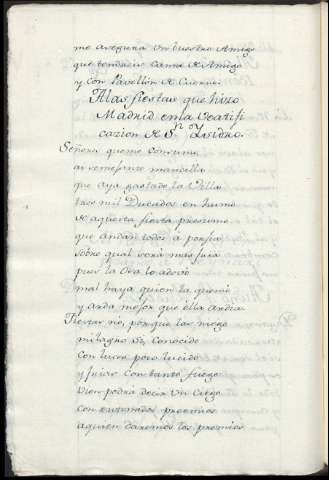 me asegura un vuestro Amigo
que tendreis carne de Amigo
y con Pavellon de Cuernos
A las fiestas que hizo
Madrid en la Veatifi
cazion de Sn. Ysidro.
Señora que me consume
ser
que aya gastado la Villa
tres mil Ducados en humo
de aquesta fiesta presumo
que andan todos a porfia
sobre qual será mas fria
pues la Oza lo adovó
mal haya quien la quemó
y anda mejor que ella ardia
Fiestas no, por que las niego
milagro es, conocido
con luces poco lucido
y frio con tanto fuego
vien podrá decir un Ciego
con
a quien daremos los premios